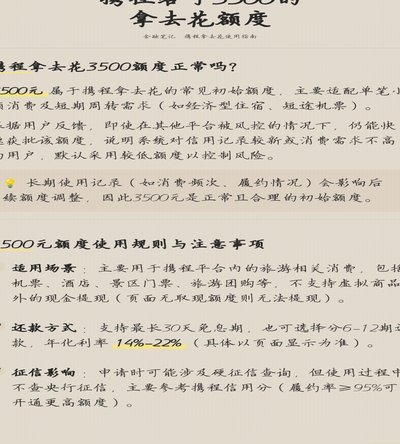 携程给了3500的
拿去花额度
金融笔记 携程拿去花使用指南
携程拿去花3500额度正常吗？
3500元 属于携程拿去花的常见初始额度，主要适配单笔小
额消费及短期周转需求（如经济型住宿、短途机票）。
根据用户反馈，即使在其他平台被风控的情况下，仍能快
速获批该额度，说明系统对信用记录较新或消费需求不高
的用户，默认采用较低额度以控制风险。
💡 长期使用记录（如消费频次、履约情况）会影响后
续额度调整，因此3500元是正常且合理的初始额度。
3500元额度使用规则与注意事项
适用场景：主要用于携程平台内的旅游相关消费，包括
机票、酒店、景区门票、旅游团购等，不支持虚拟商品
外的现金提现（页面无取现额度则无法提现）。
还款方式：支持最长30天免息期，也可选择分6-12期还
款，年化利率 14%-22%（具体以页面显示为准）。
征信影响：申请时可能涉及硬征信查询，但使用过程中
不查央行征信，主要参考携程信用分（履约率≥95%可
开通更高额度）。